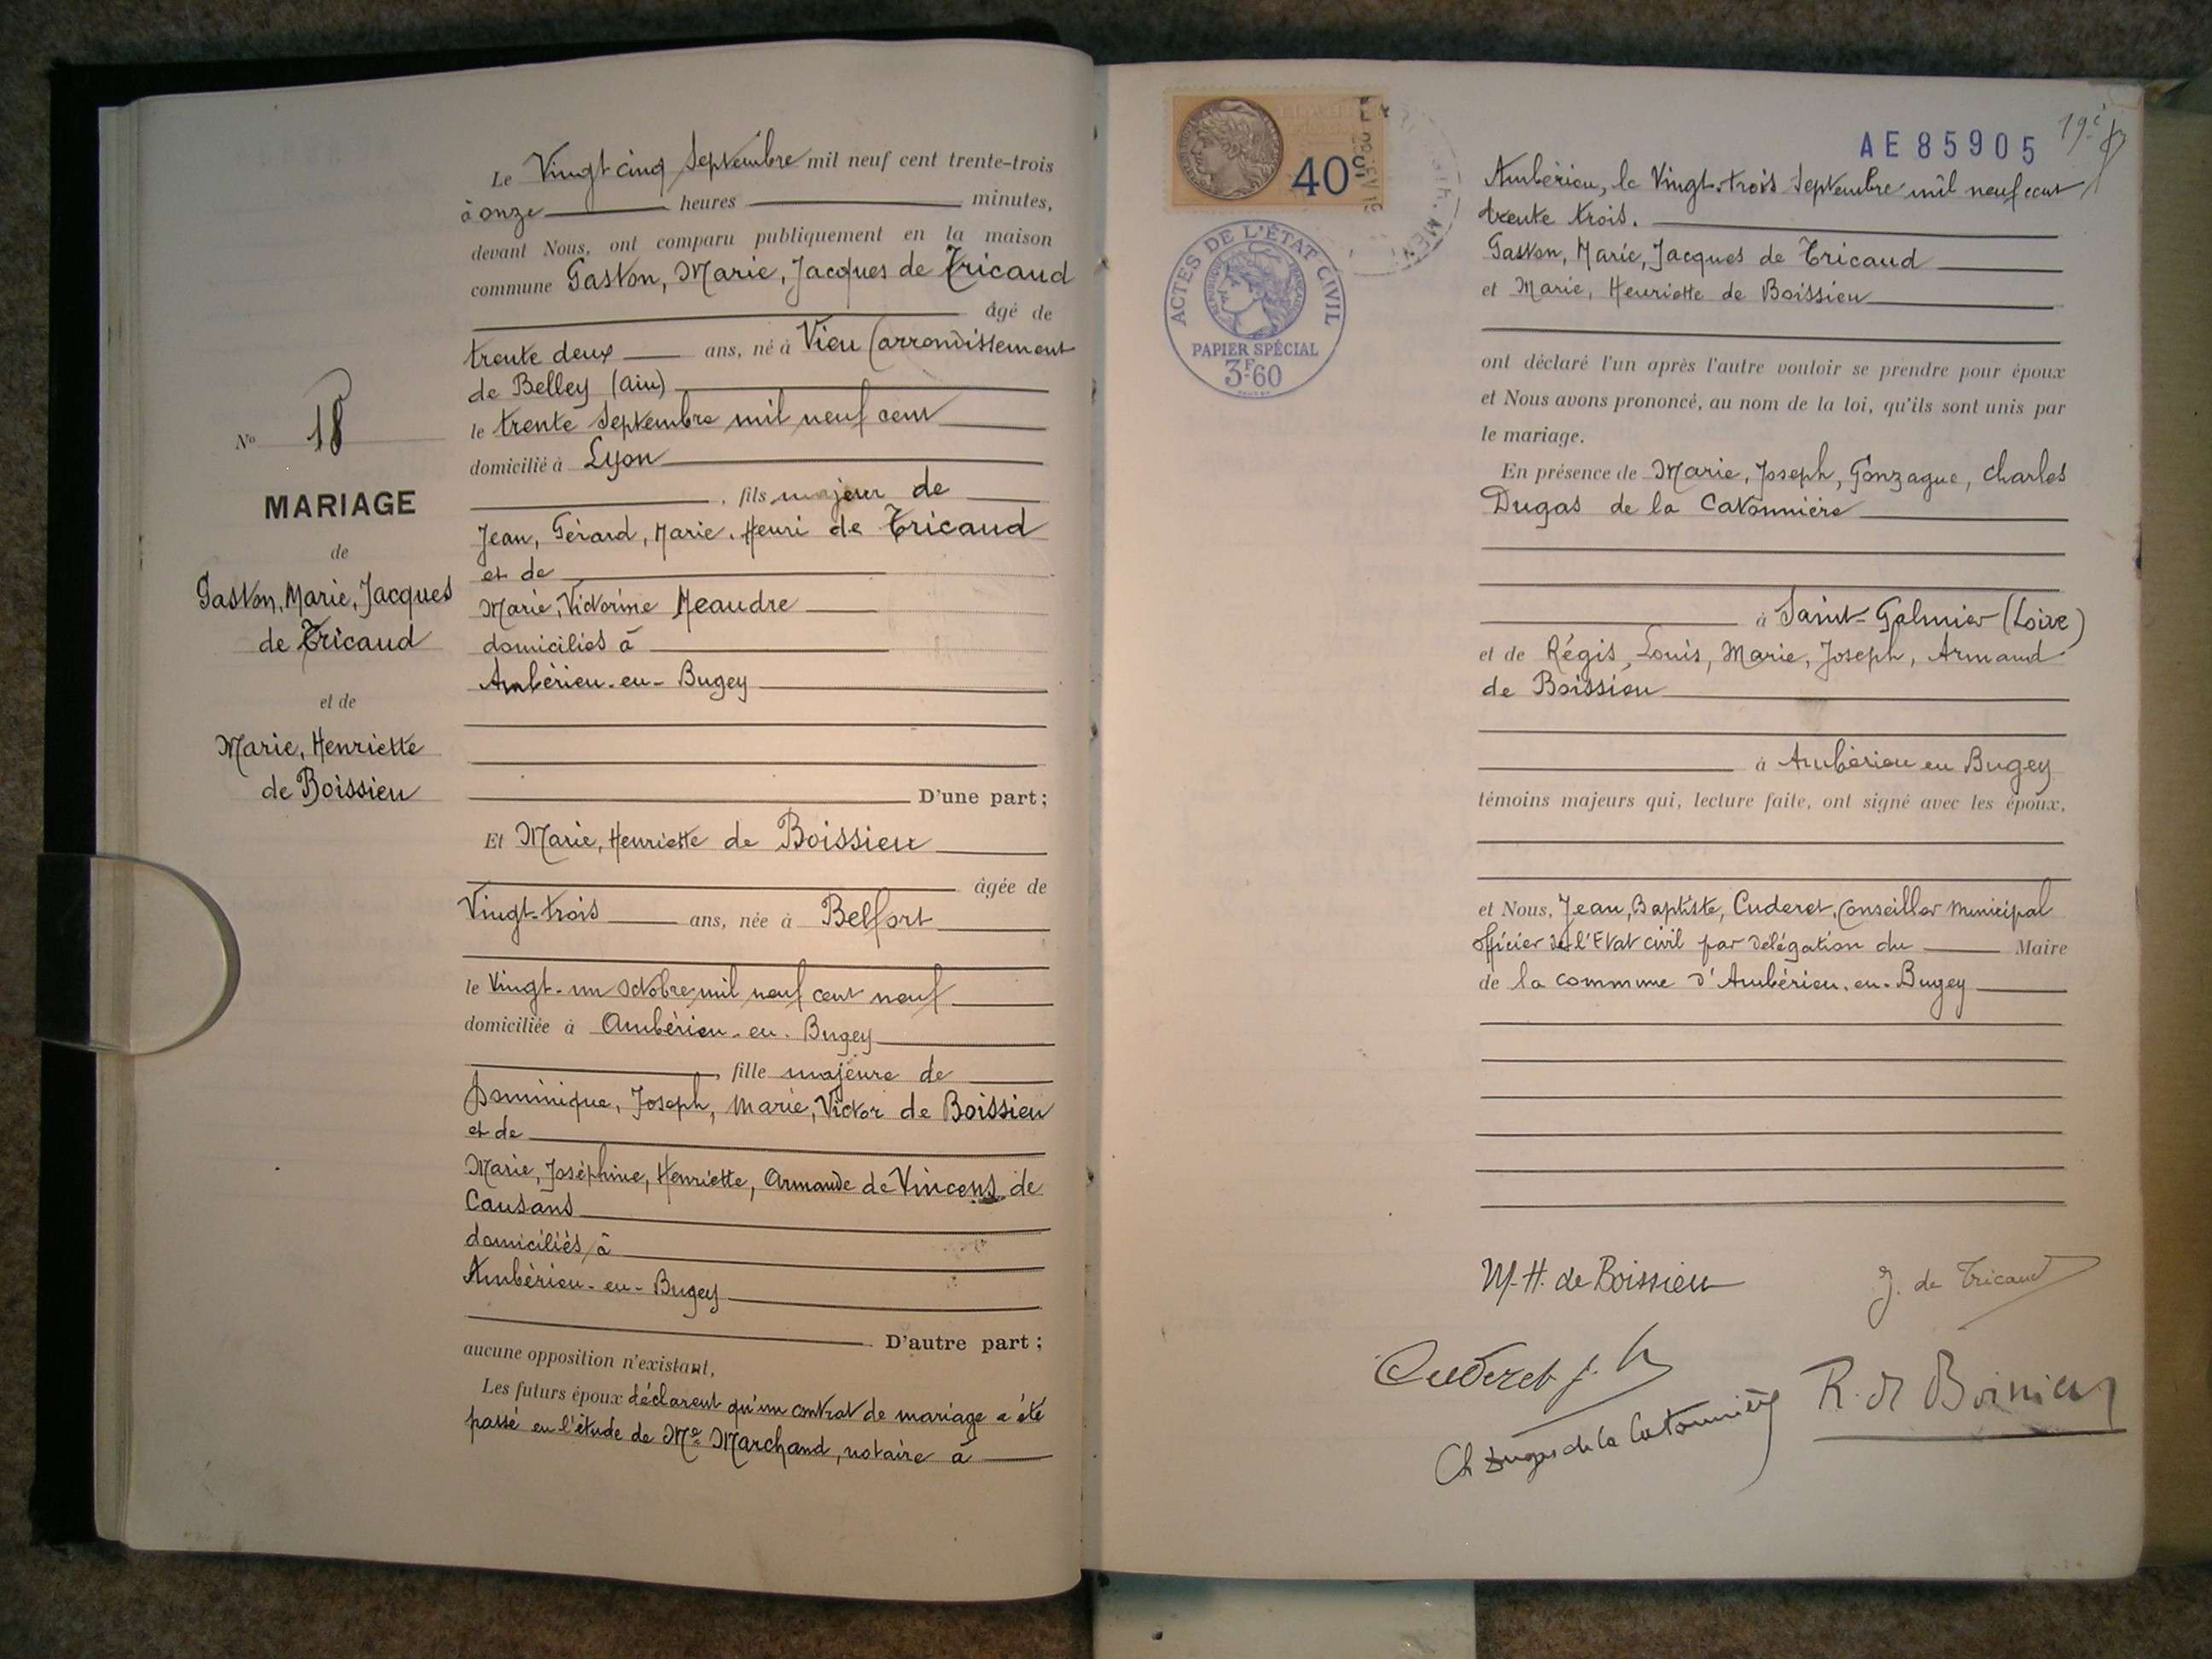 Le Vingt cinq Septembre mil neuf cent trente-trois
à onze heures minutes,
devant Nous, ont comparu publiquement en la maison
commune Gaston, Marie, Jacques de Tricaud
âgé de
trente deux ans, né à Vieu (arrondissement
de Belley (Ain)
le trente Septembre mil neuf cent
domicilié à Lyon
, fils majeur de
Jean, Gérard, Marie, Henri de Tricaud
et de
Marie, Victorine Meaudre
domiciliés à
Ambérieu-en-Bugey
D'une part;
Et Marie, Henriette de Boissieu
âgée de
Vingt-trois ans, née à Belfort
le Vingt-un Octobre mil neuf cent neuf
domiciliée à Ambérieu-en-Bugey
, fille majeure de
Dominique, Joseph, Marie, Victor de Boissieu
et de
Marie, Joséphine, Henriette, Armande de Vincens de
Causans
domiciliés à
Ambérieu-en-Bugey
D'autre part;
aucune opposition n'existant,
Les futurs époux déclarent qu'un contrat de mariage a été
passé en l'étude de Me Marchand, notaire à
No 18
MARIAGE
de
Gaston, Marie, Jacques
de Tricaud
et de
Marie, Henriette
de Boissieu
40c
ACTES DE L'ÉTAT CIVIL
RÉPUBLIQUE FRANÇAISE
PAPIER SPÉCIAL
3F60
AE 85905
Ambérieu, le Vingt-trois Septembre mil neuf cent
trente trois.
Gaston, Marie, Jacques de Tricaud
et Marie, Henriette de Boissieu
ont déclaré l'un après l'autre vouloir se prendre pour époux
et Nous avons prononcé, au nom de la loi, qu'ils sont unis par
le mariage.
En présence de Marie, Joseph, Gonzague, Charles
Dugas de la Catonnière
à Saint-Galmier (Loire)
et de Régis, Louis, Marie, Joseph, Armand
de Boissieu
à Ambérieu en Bugey
témoins majeurs qui, lecture faite, ont signé avec les époux,
et Nous, Jean, Baptiste, Cuderet, Conseiller Municipal
officier de l'Etat civil par délégation du Maire
de la commune d'Ambérieu-en-Bugey
M-H. de Boissieu
J. de Tricaud
Cuderet J. B
R. de Boissieu
Ch Dugas de la Catonnière